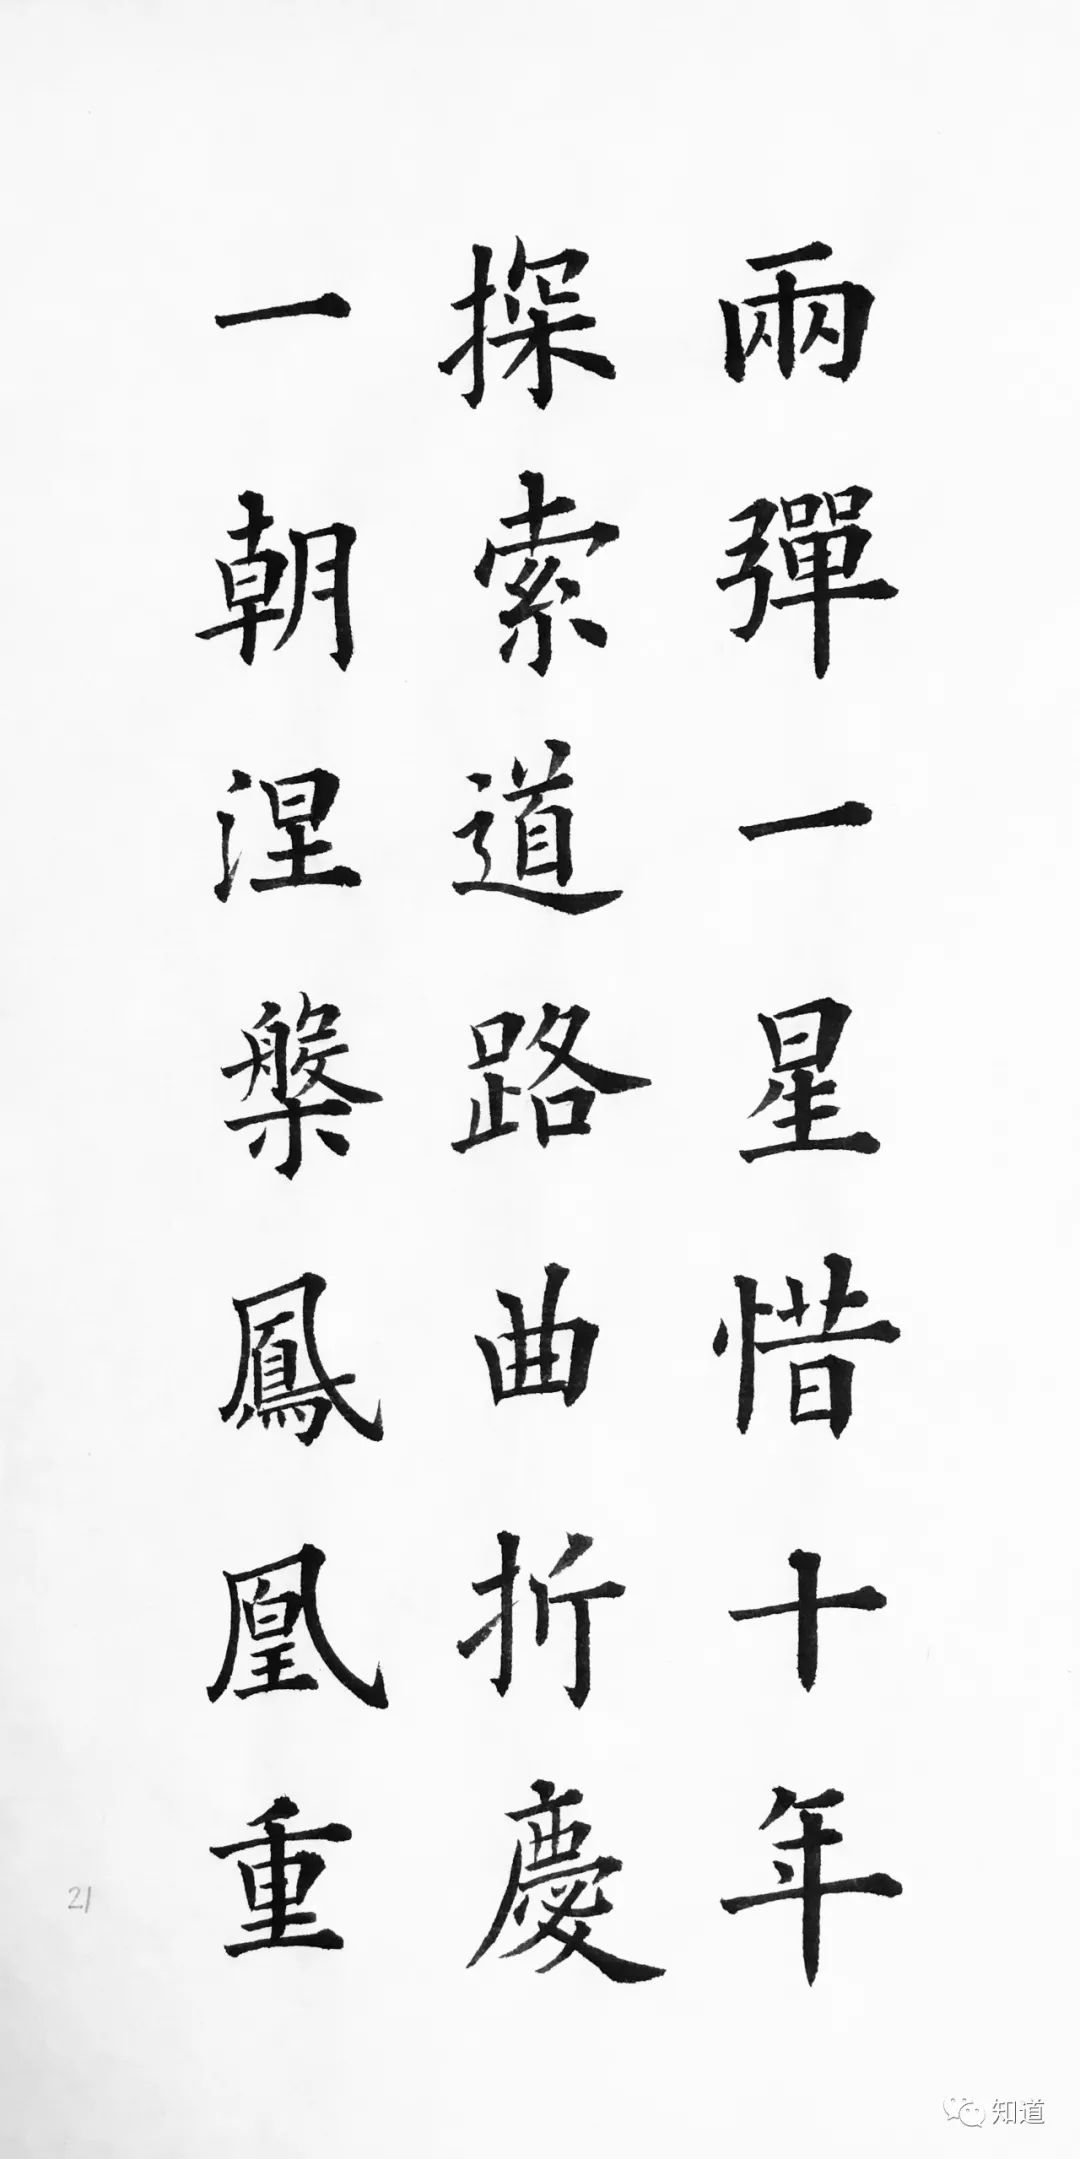 兩彈一星惜十年
探索道路曲折慶
一朝涅槃鳳凰重
21
知道